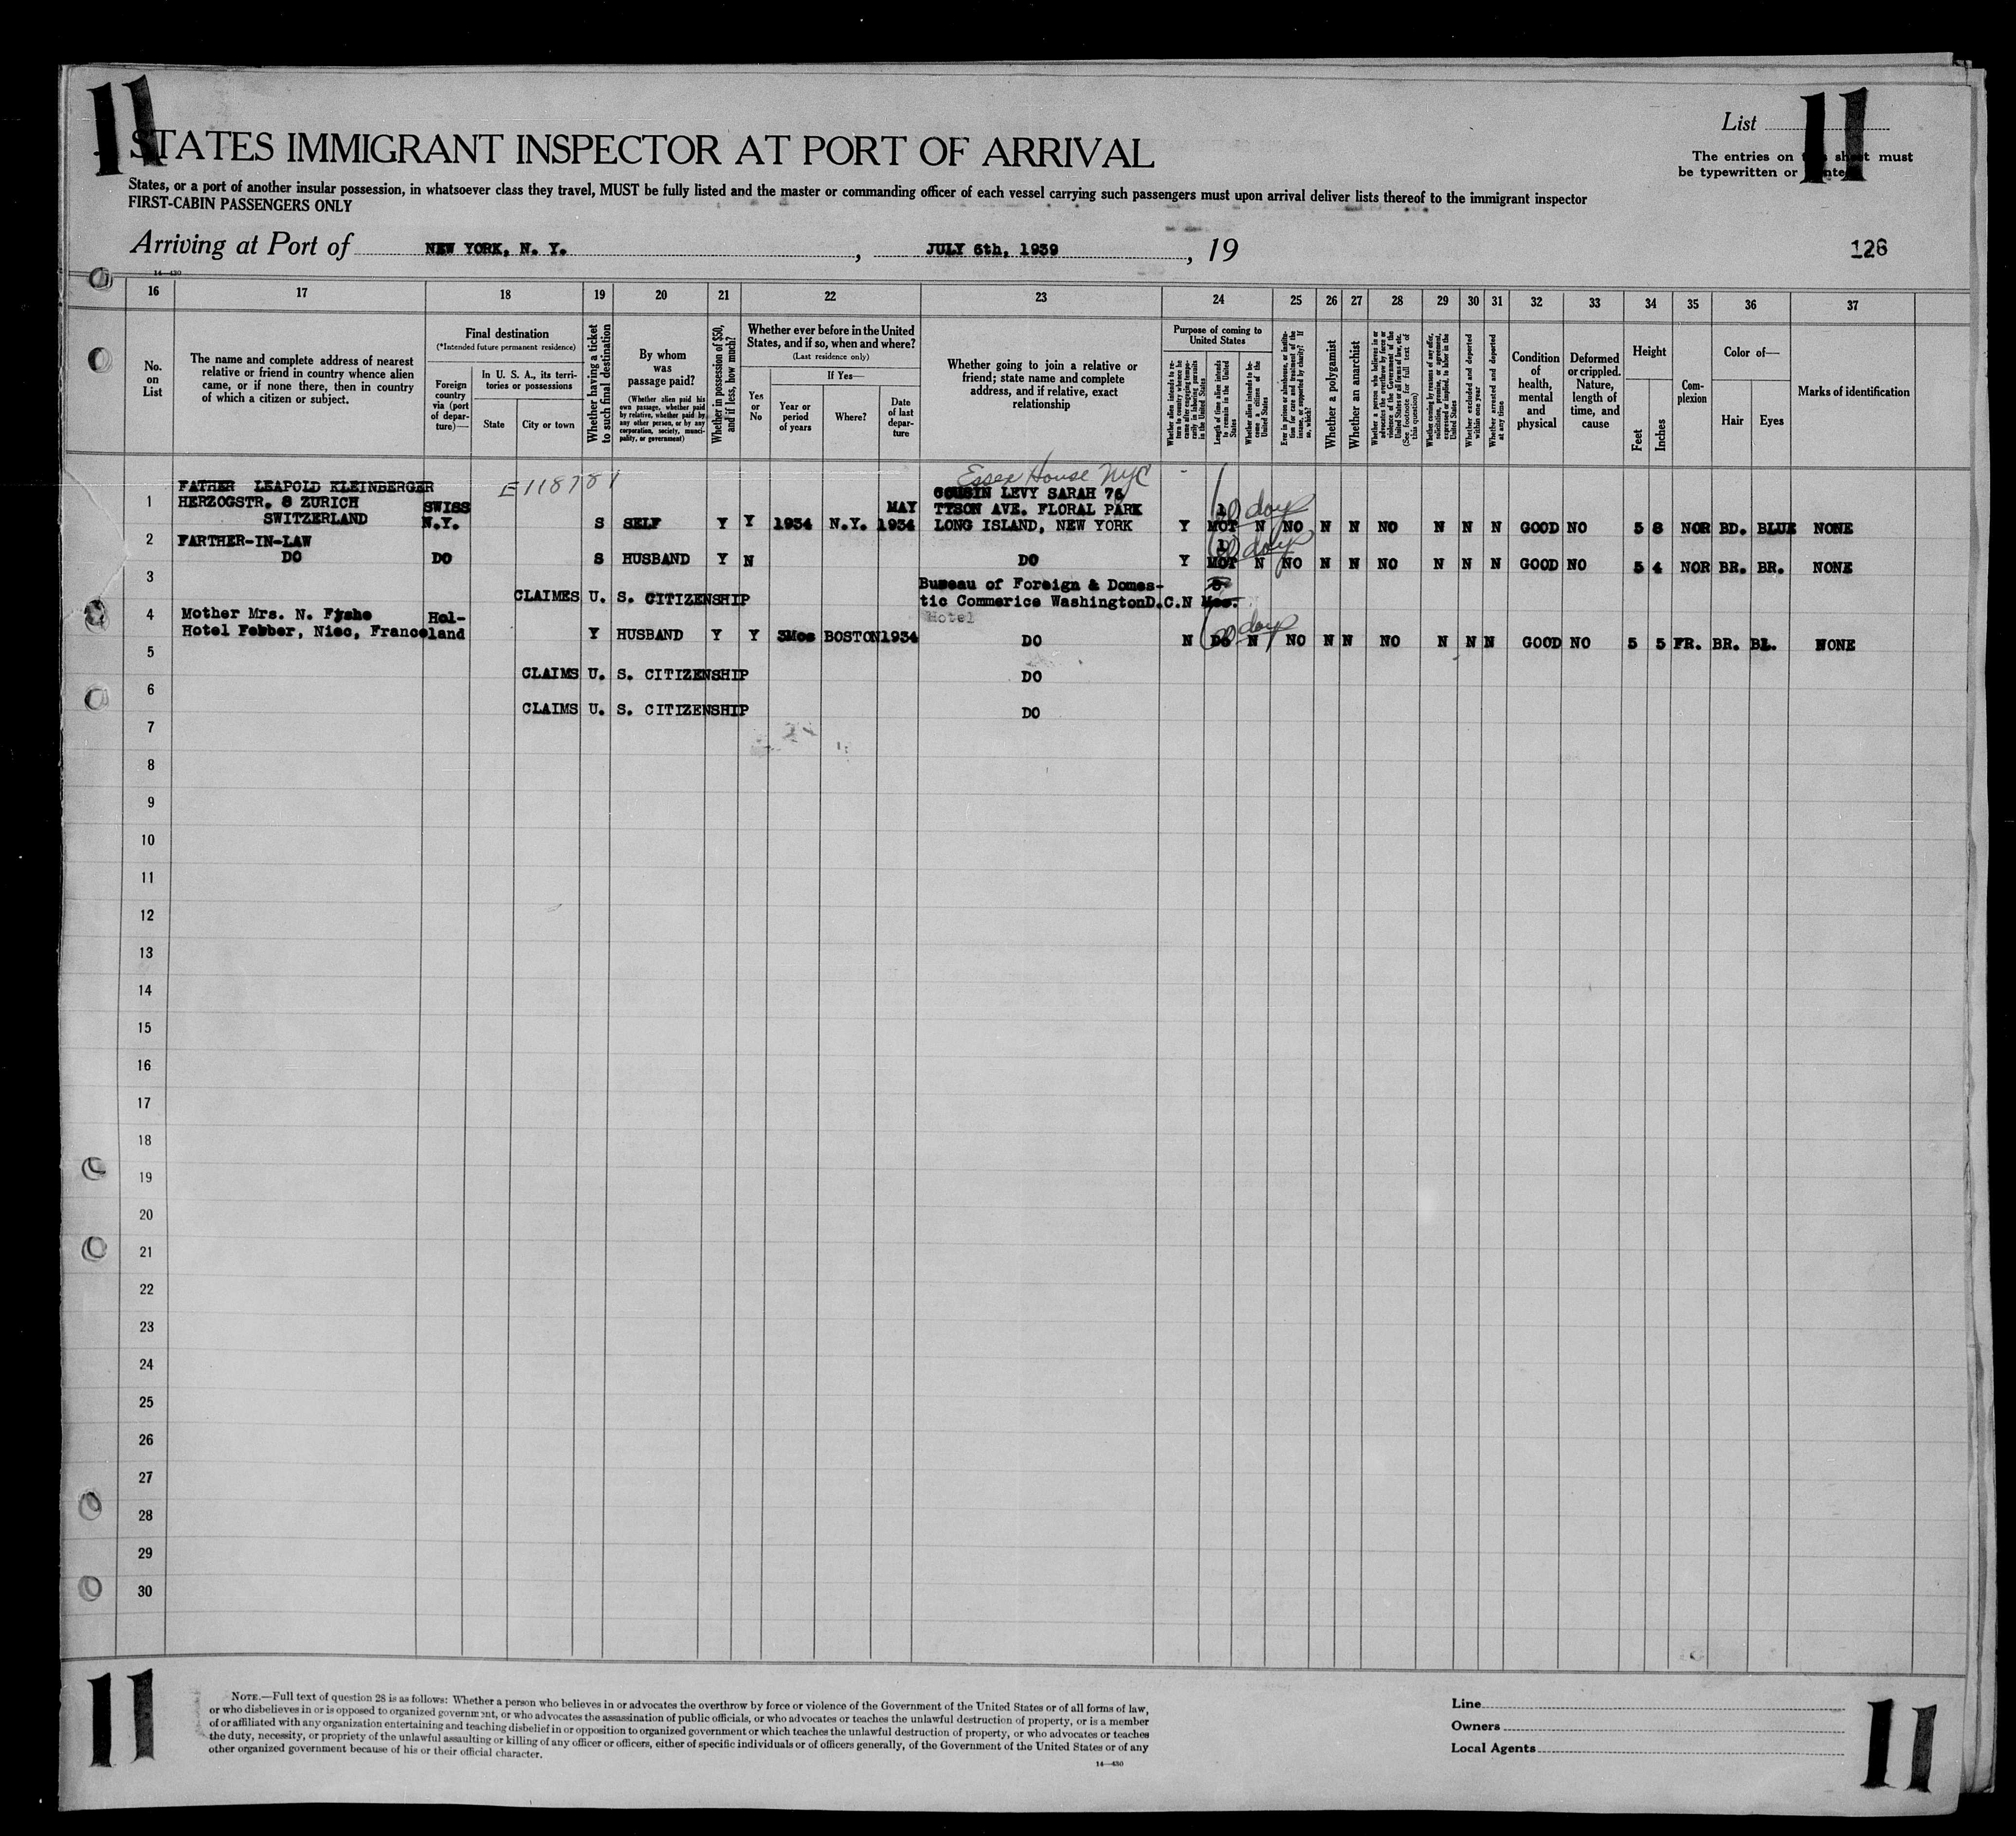 11
11
STATES IMMIGRANT INSPECTOR AT PORT OF ARRIVAL
List
The entries on sheet must
be typewritten or
States, or a port of another insular possession, in whatsoever class they travel, MUST be fully listed and the master or commanding officer of each vessel carrying such passengers must upon arrival deliver lists thereof to the immigrant inspector
FIRST-CABIN PASSENGERS ONLY
Arriving at Port of NEW YORK, N. Y., JULY 6th, 1939, 19
126
14—430
16 17 18 19 20 21 22 23 24 25 26 27 28 29 30 31 32 33 34 35 36 37
No. on List
The name and complete address of nearest relative or friend in country whence alien came, or if none there, then in country of which a citizen or subject.
Final destination
(*Intended future permanent residence)
Foreign country via (port of departure)—
In U. S. A., its territories or possessions
State
City or town
Whether having a ticket to such final destination
By whom was passage paid?
(Whether alien paid his own passage, whether paid by relative, whether paid by any other person, or by any corporation, society, municipality, or government)
Whether in possession of $50, and if less, how much?
Whether ever before in the United States, and if so, when and where?
(Last residence only)
Yes or No
If Yes—
Year or period of years
Where?
Date of last departure
Whether going to join a relative or friend; state name and complete address, and if relative, exact relationship
Purpose of coming to United States
Whether alien intends to return to country whence he came after engaging temporarily in laboring pursuits in the United States
Length of time alien intends to remain in the United States
Whether alien intends to become a citizen of the United States
Ever in prison or almshouse, or institution for care and treatment of the insane, or supported by charity? If so, which?
Whether a polygamist
Whether an anarchist
Whether a person who believes in or advocates the overthrow by force or violence of the Government of the United States or all forms of law, etc. (See footnote for full text of this question)
Whether coming by reason of any offer, solicitation, promise, or agreement, expressed or implied, to labor in the United States
Whether excluded and deported within one year
Whether arrested and deported at any time
Condition of health, mental and physical
Deformed or crippled. Nature, length of time, and cause
Height
Feet
Inches
Complexion
Color of—
Hair
Eyes
Marks of identification
Essex House NYC
E118781
1 FATHER LEAPOLD KLEINBERGER
HERZOGSTR. 8 ZURICH
SWITZERLAND
SWISS
N.Y.
S SELF Y Y 1934 N.Y. MAY 1934
COUSIN LEVY SARAH 76
TYSON AVE. FLORAL PARK
LONG ISLAND, NEW YORK
Y 1 MOT 60 days N NO N N NO N N N GOOD NO 5 8 NOR BD. BLUE NONE
2 FARTHER-IN-LAW
DO DO S HUSBAND Y N DO Y 1 MOT 60 days N NO N N NO N N N GOOD NO 5 4 NOR BR. BR. NONE
3 CLAIMES U. S. CITIZENSHIP
Bureau of Foreign & Domes-
tic Commerice WashingtonD.C. N Mos.
Hotel
4 Mother Mrs. N. Fyshe
Hotel Febber, Niec, France
Hol-
land
Y HUSBAND Y Y 3Mos BOSTON 1934 DO N DO 60 days N NO N N NO N N N GOOD NO 5 5 FR. BR. BL. NONE
5 CLAIMS U. S. CITIZENSHIP DO
6 CLAIMS U. S. CITIZENSHIP DO
7
8
9
10
11
12
13
14
15
16
17
18
19
20
21
22
23
24
25
26
27
28
29
30
NOTE.—Full text of question 28 is as follows: Whether a person who believes in or advocates the overthrow by force or violence of the Government of the United States or of all forms of law,
or who disbelieves in or is opposed to organized government, or who advocates the assassination of public officials, or who advocates or teaches the unlawful destruction of property, or is a member
of or affiliated with any organization entertaining and teaching disbelief in or opposition to organized government or which teaches the unlawful destruction of property, or who advocates or teaches
the duty, necessity, or propriety of the unlawful assaulting or killing of any officer or officers, either of specific individuals or of officers generally, of the Government of the United States or of any
other organized government because of his or their official character.
14—430
Line
Owners
Local Agents
11
11